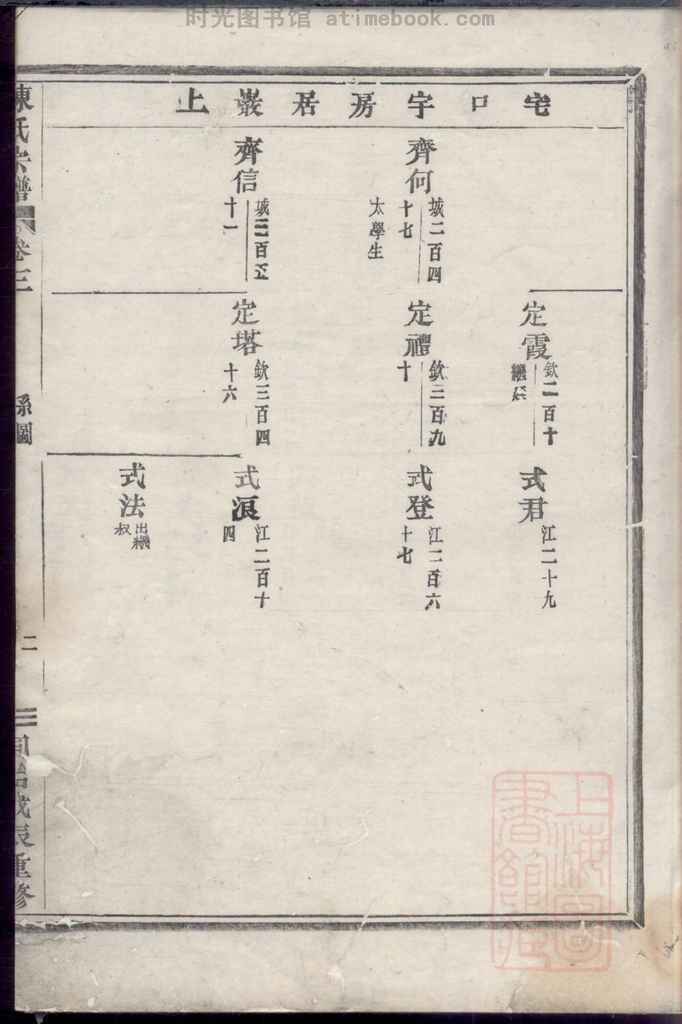 时光图书馆 atimebook.com
宅口字房居巖上
齊何
城二百四
十七
太學生
齊信
十一
定霞
欽二百十
定禮
欽三百九
十
定塔
欽三百四
十六
式君
江二十九
式登
江二百六
十七
式浪
江二百十
四
式法
出繼
叔
陳氏宗譜 卷三 系圖 二 同治戊辰重修
上海圖書館藏